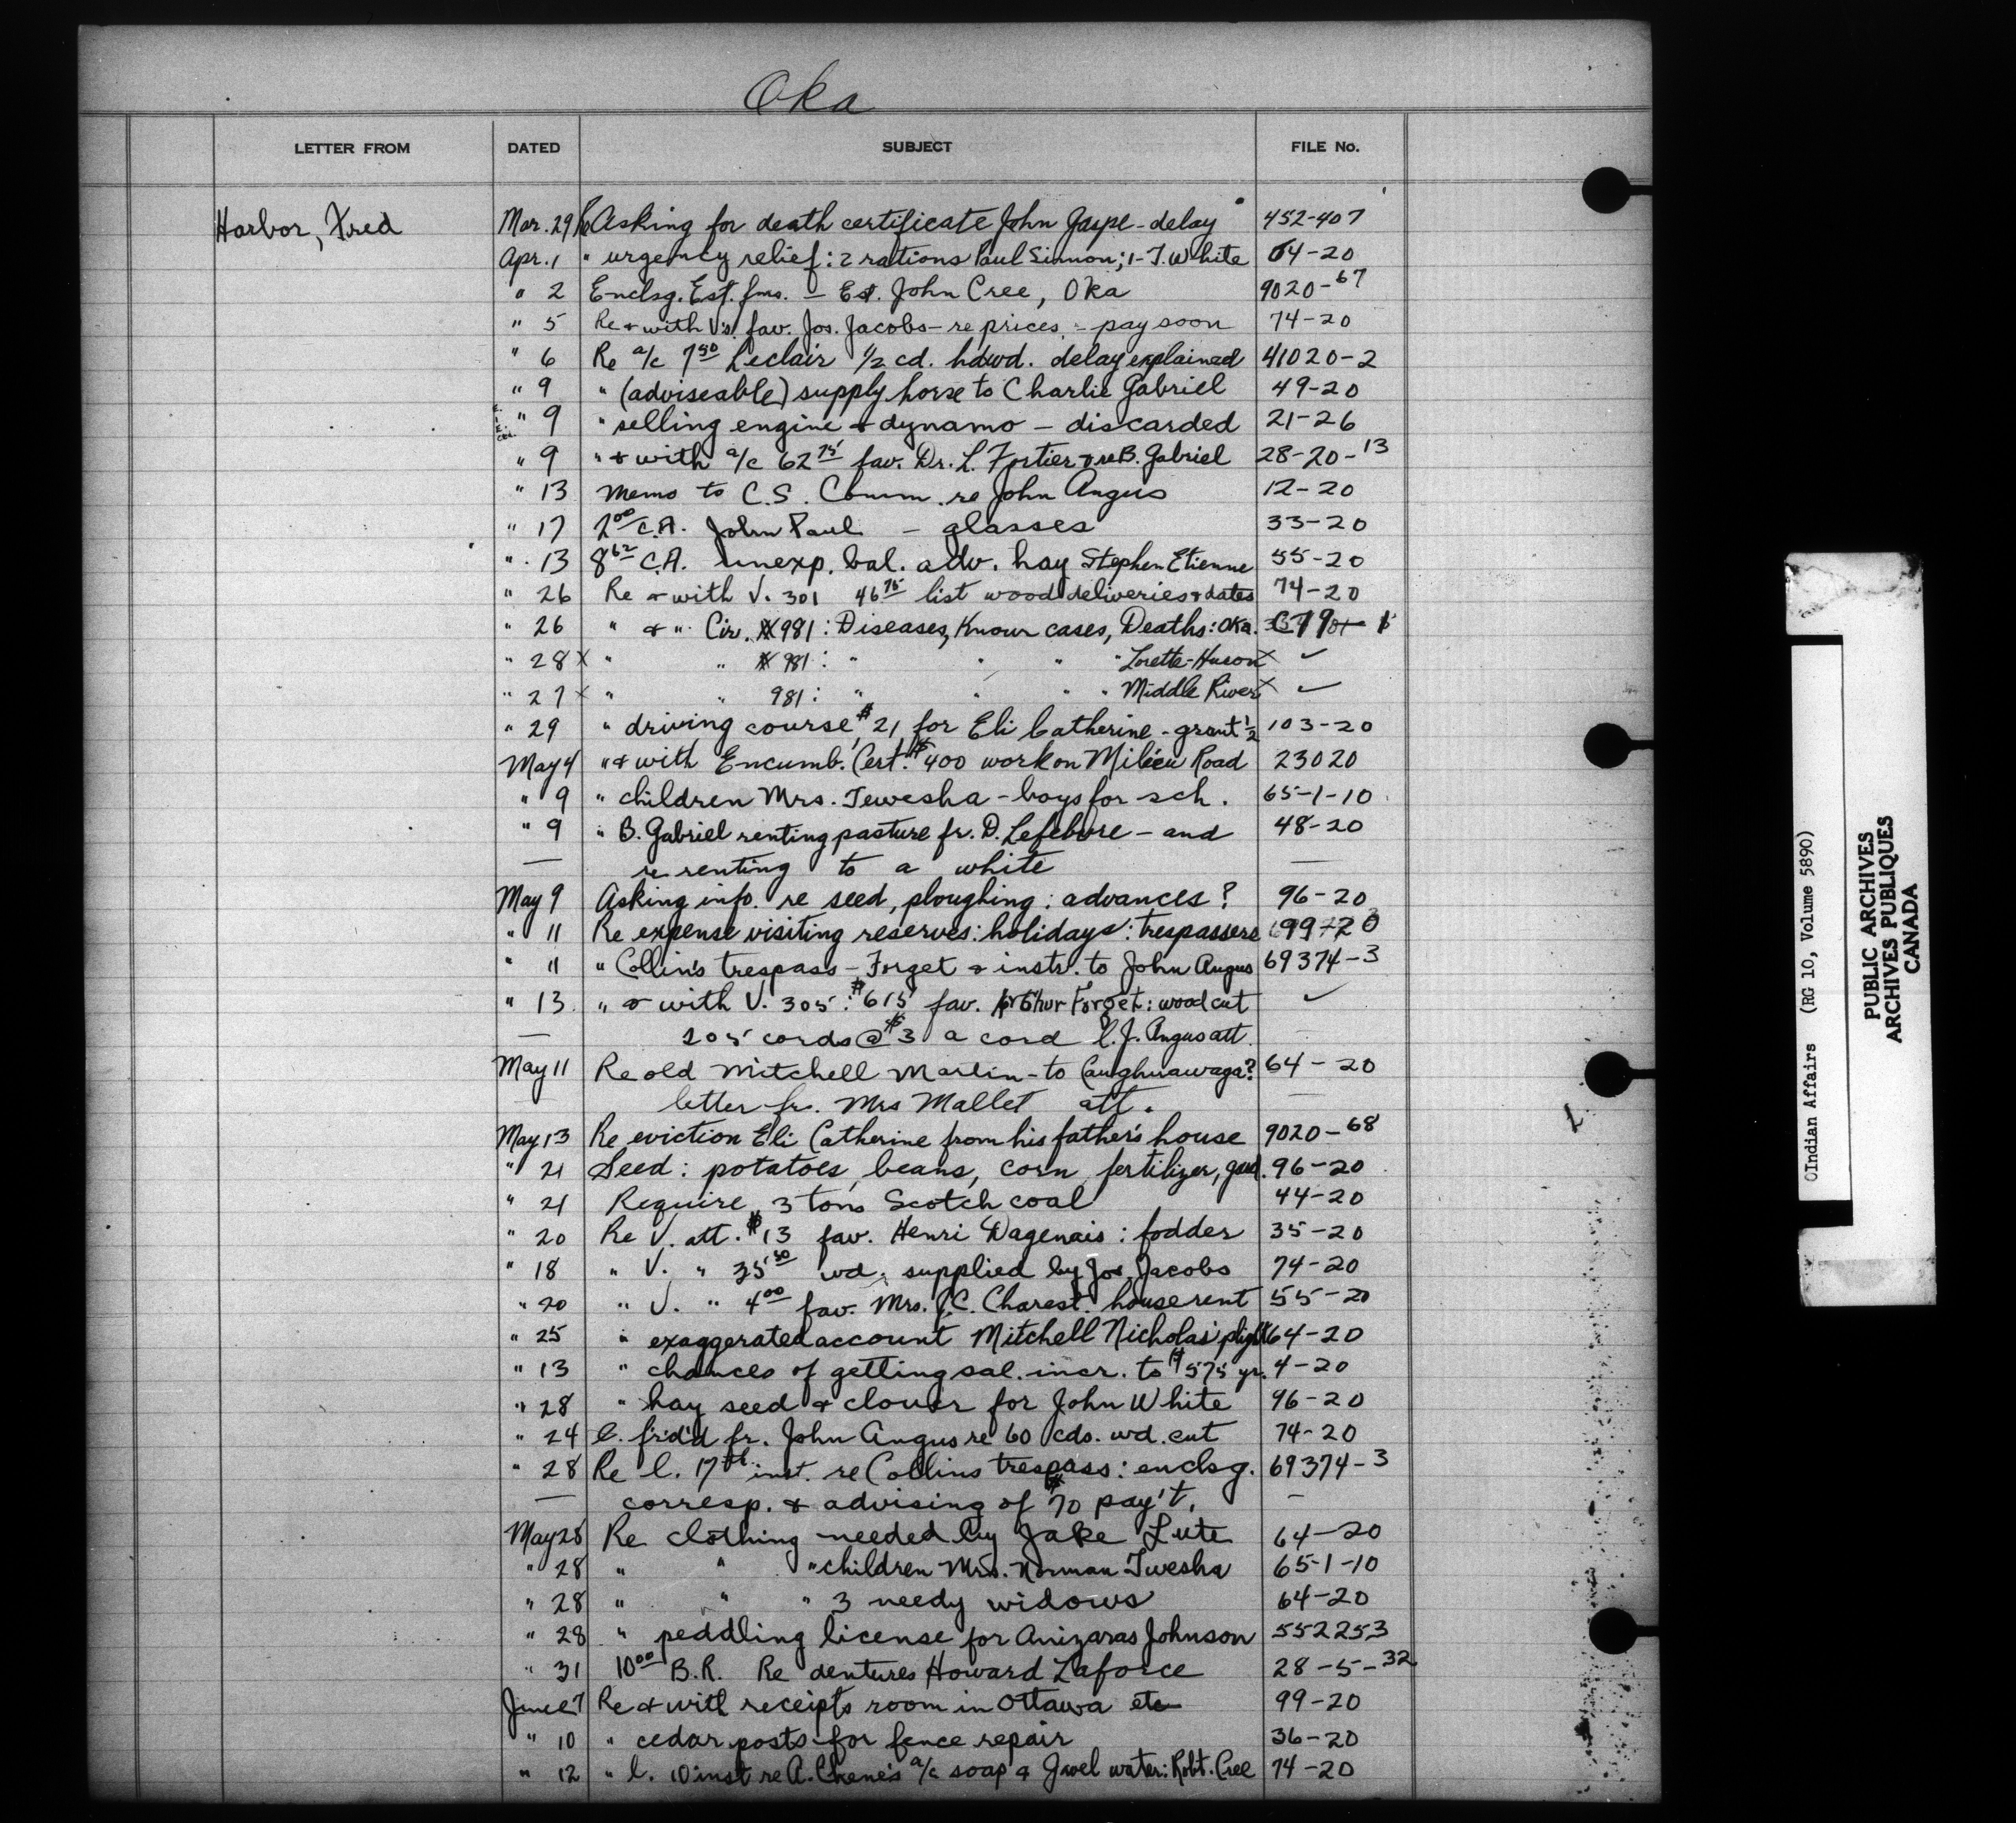 Oka
LETTER FROM DATED SUBJECT FILE No.
Harbor, Fred Mar. 29 Asking for death certificate John Gaspe - delay 452-407
Apr. 1 " urgency relief: 2 rations Paul Simmon; 1- J. White 64-20
" 2 Enclsg. Est. fms. - Est. John Cree, Oka 9020-67
" 5 Re & with V's. fav. Jos. Jacobs - re prices - pay soon 74-20
" 6 Re a/c 7 50 Leclair 1/2 cd. hdwd. delay explained 41020-2
" 9 " (adviseable) supply horse to Charlie Gabriel 49-20
" 9 " selling engine & dynamo - discarded 21-26
" 9 " & with a/c 62 75 fav. Dr. L. Fortier & re B. Gabriel 28-20-13
" 13 Memo to C.S. Comm. re John Angus 12-20
" 17 2 00 C.A. John Paul - glasses 33-20
" 13 8 62 C.A. unexp. bal. adv. hay Stephen Etienne 55-20
" 26 Re & with V. 301 46 75 list wood deliveries & dates 74-20
" 26 " & " Cir. 981: Diseases, Known cases, Deaths: Oka.
" 28 x " " 981: " " " " Lorette-Huron x ✓
" 27 x " " 981: " " " " Middle River x ✓
" 29 " driving course, $21, for Eli Catherine - grant 1/2 103-20
May 4 " & with Encumb. Cert. $400 work on Milieu Road 23020
" 9 " children Mrs. Tewesha - boys for sch. 65-1-10
" 9 " B. Gabriel renting pasture fr. D. Lefebvre - and 48-20
— re renting to a white —
May 9 Asking info. re seed, ploughing: advances? 96-20
" 11 Re expense visiting reserves: holidays: trespassers 99-20
" 11 " Collin's trespass - Forget & instr. to John Angus 69374-3
" 13 " & with V. 305: $615 fav. Arthur Forget: wood cut ✓
— 205 cords @ $3 a cord l. J. Angus att. —
May 11 Re old Mitchell Martin - to Caughnawaga? 64-20
— letter fr. Mrs Mallet att. —
May 13 Re eviction Eli Catherine from his father's house 9020-68
" 21 Seed: potatoes, beans, corn, fertilizer, gard. 96-20
" 21 Require 3 tons Scotch coal 44-20
" 20 Re V. att. $13 fav. Henri Dagenais: fodder 35-20
" 18 " V. " 35 50 wd. supplied by Jos. Jacobs 74-20
" 20 " V. " 4 00 fav. Mrs. J.C. Charest. house rent 55-20
" 25 " exaggerated account Mitchell Nicholas' plight 64-20
" 13 " chances of getting sal. incr. to $575 yr. 4-20
" 28 " hay seed & clover for John White 96-20
" 24 l. fr'd'd fr. John Angus re 60 cds. wd. cut 74-20
" 28 Re l. 17th inst. re Collins trespass: enclsg. 69374-3
— corresp. & advising of $70 pay't. —
May 28 Re clothing needed by Jake Lute 64-20
" 28 " " " children Mrs. Norman Twesha 65-1-10
" 28 " " " 3 needy widows 64-20
" 28 " peddling license for Anizaras Johnson 552253
" 31 10 00 B.R. Re dentures Howard Laforce 28-5-32
June 7 Re & with receipts room in Ottawa etc 99-20
" 10 " cedar posts for fence repair 36-20
" 12 " l. 10 inst re A. Chene's a/c soap & Javel water: Robt. Cree 74-20
(RG 10, Volume 5890)
Indian Affairs
PUBLIC ARCHIVES
ARCHIVES PUBLIQUES
CANADA